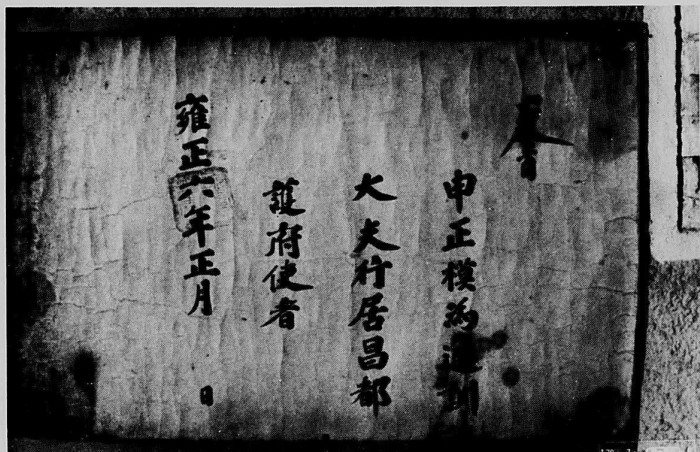 敎旨
申正模為通訓
大夫行居昌都
護府使者
雍正六年正月 日